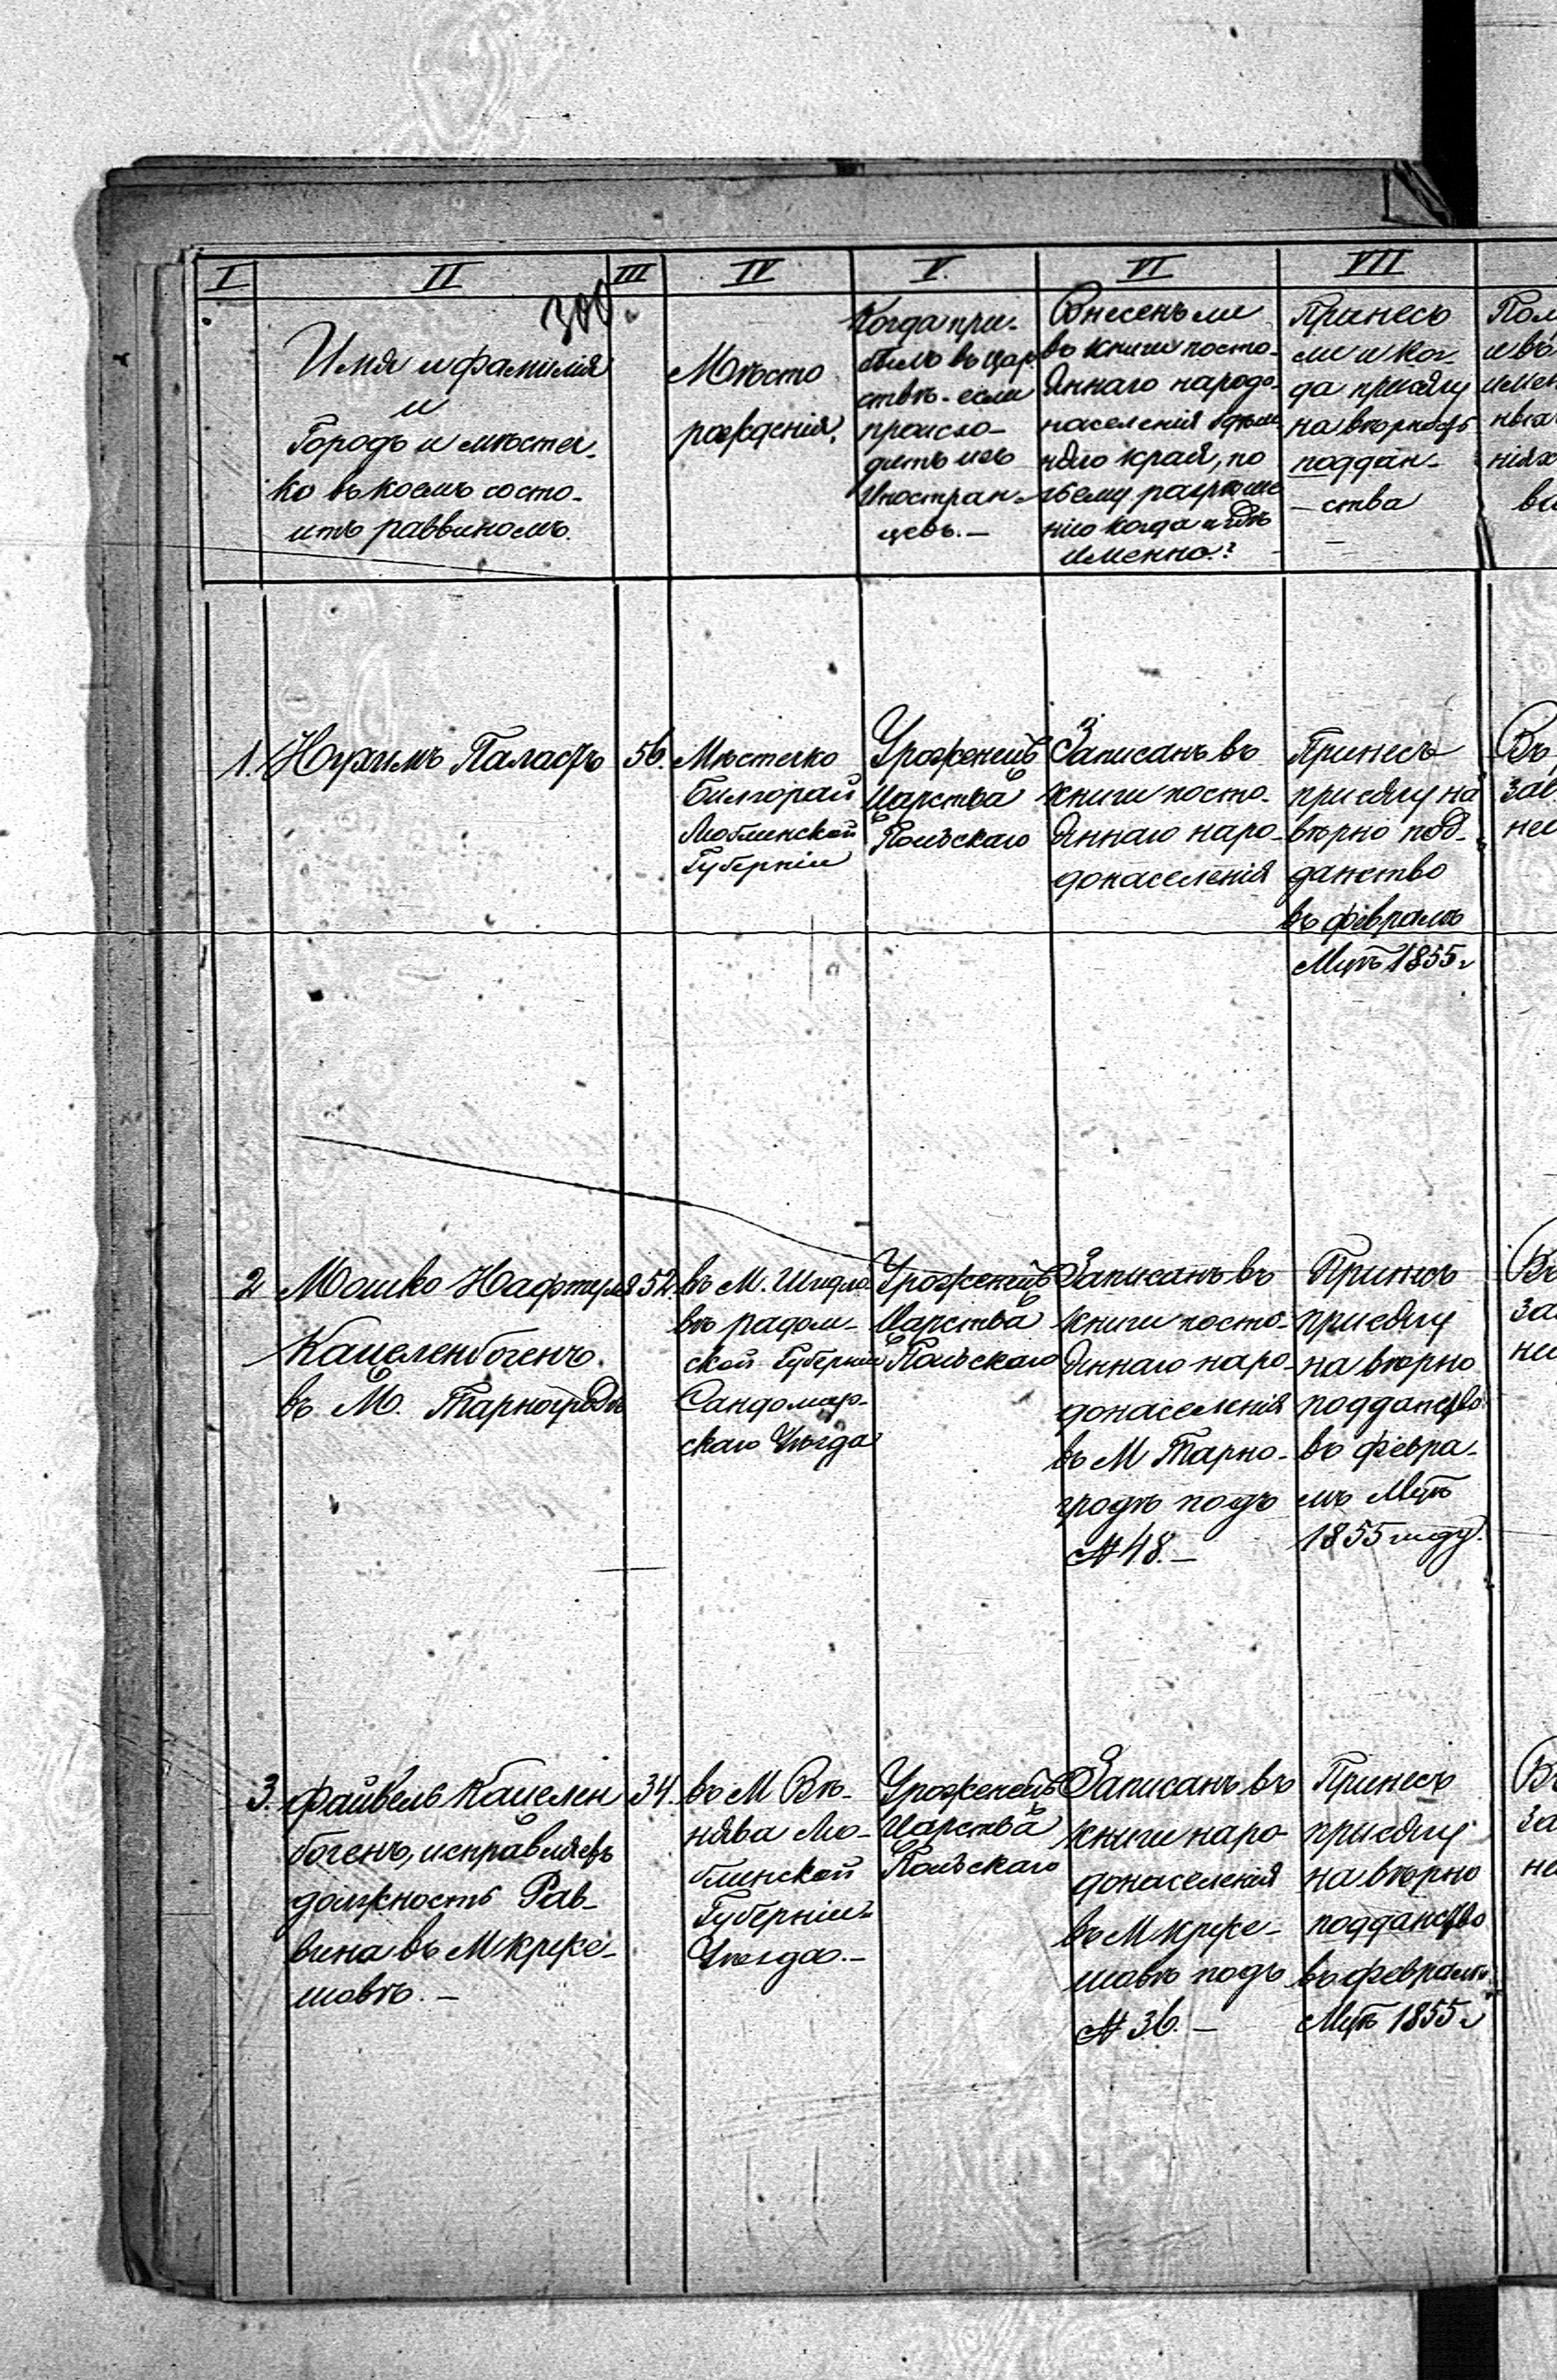 I
II
III
IV
V.
VI
VII
300.
Имя и фамилія
и
Городъ и местеч-
ко въ коемъ состо-
итъ раввиномъ.
Мѣсто
рожденія,
Когда при-
былъ въ цар-
ствѣ - если
происхо-
дитъ изъ
Иностран-
цевъ. —
Внесенъ ли
въ книги посто-
яннаго народо-
населенія
края, по
чьему разрѣше
нію когда и гдѣ
именно?
Принесъ
ли и ког-
да присягу
на вѣрность
поддан-
- ства
Пол
и въ
имен
ныхъ
ніяхъ
1.
Нухимъ Паластъ
56.
Мѣстечко
Билгорай
Люблинской
Губерніи
Уроженецъ
Царства
Польскаго
Записанъ въ
книги посто-
яннаго наро-
донаселенія
Принесъ
присягу на
вѣрно под-
данство
въ февралѣ
Мцѣ 1855 г
Въ
зав
неи
2
Мошко Нафтуля
Каценленбогенъ.
въ М. Тарногродѣ
52.
въ М. Шидло-
въ радом-
ской Губерніи
Сандомир-
скаго Уѣзда
Уроженецъ
Царства
Польскаго
Записанъ въ
книги посто-
яннаго наро-
донаселенія
въ М Тарно-
гродѣ подъ
№ 48. —
Принесъ
присягу
на вѣрно
подданство
въ февра-
лѣ Мцѣ
1855 году.
Въ
за
не
3.
Файвель Кацелен
богенъ, исправляетъ
должность Рав-
вина въ М Креже-
шовѣ. —
34.
въ М Вѣ-
нява Лю-
блинской
Губерніи
Уѣзда. —
Уроженецъ
Царства
Польскаго
Записанъ въ
книги наро-
донаселенія
въ М Креже-
шовѣ подъ
№ 36. —
Принесъ
присягу
на вѣрно
подданство
въ февралѣ
Мцѣ 1855 г
Въ
за
не